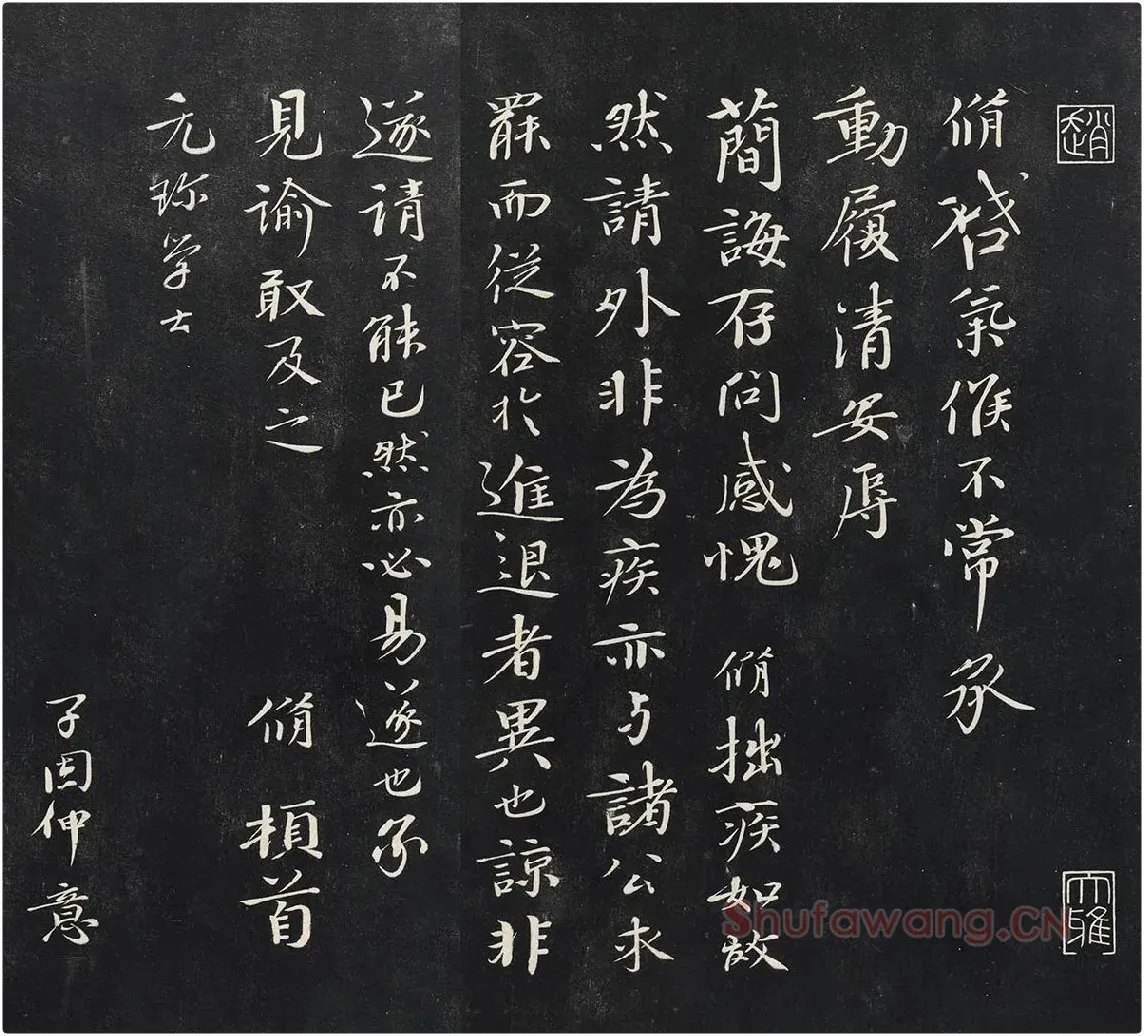 趙
大雅
脩啓氣候不常承
動履清安辱
簡誨存問感愧 脩拙疾如故
然請外非為疾亦与諸公求
罷而從容於進退者異也諒非
遂請不能已然亦必易遂也承
見諭敢及之 脩頓首
元珎学士
子固仲意
Shufawang.CN